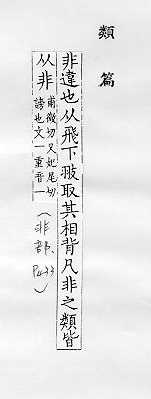 類篇
非違也从飛下翄取其相背凡非之類皆
从非
甫微切又妃尾切
謗也文一重音一
(非部、P433)